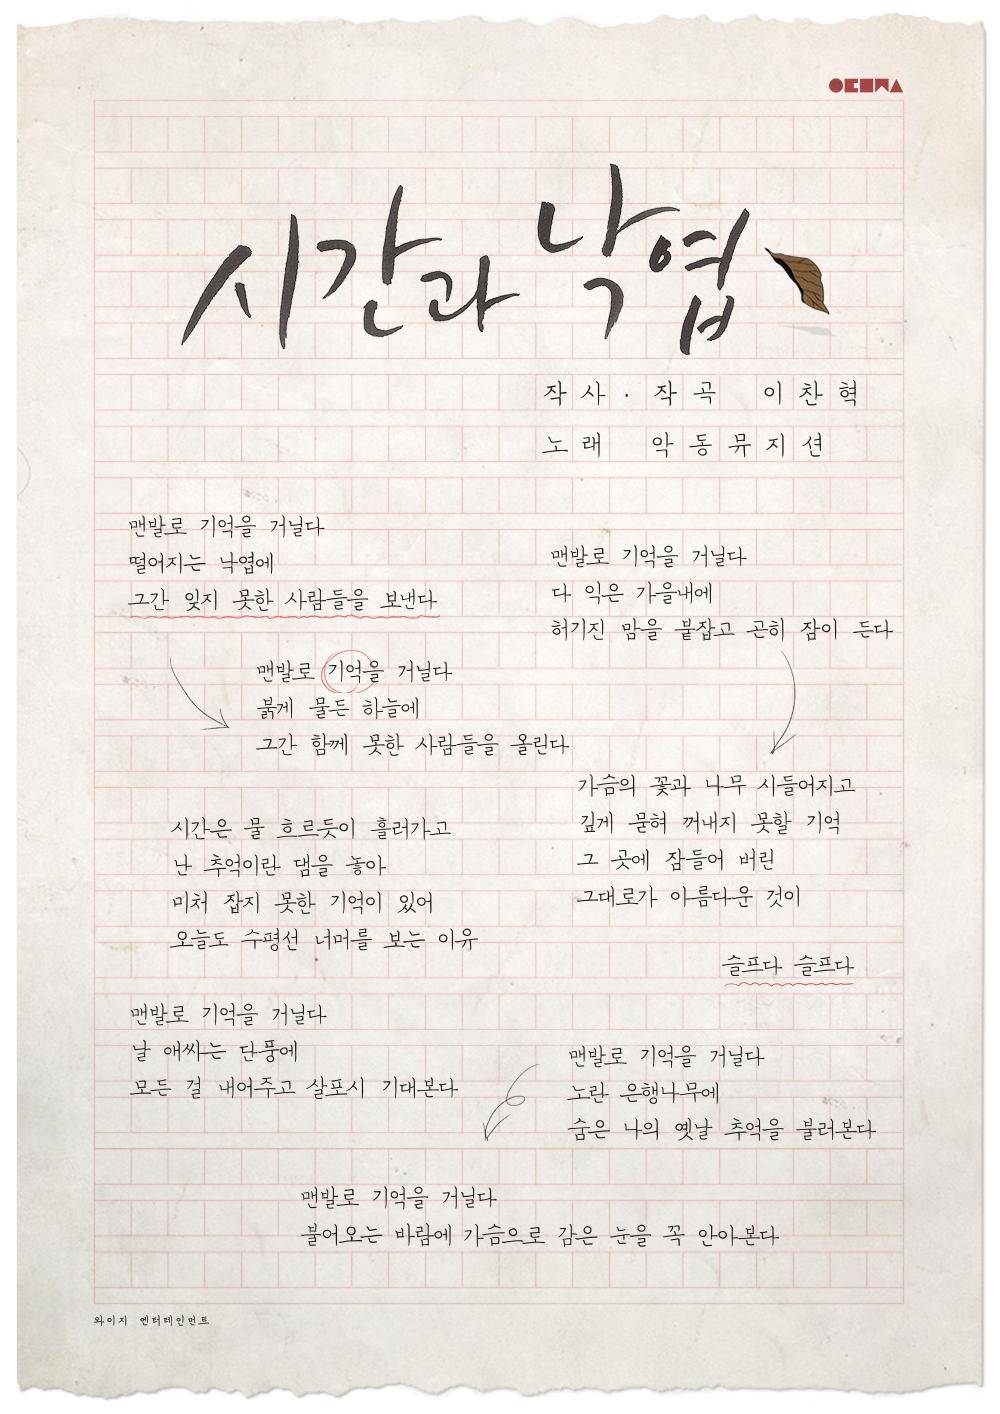 시간과 낙엽
작사 · 작곡 이찬혁
노래 악동뮤지션
맨발로 기억을 거닐다
떨어지는 낙엽에
그간 잊지 못한 사람들을 보낸다
맨발로 기억을 거닐다
붉게 물든 하늘에
그간 함께 못한 사람들을 올린다
시간은 물 흐르듯이 흘러가고
난 추억이란 댐을 놓아
미처 잡지 못한 기억이 있어
오늘도 수평선 너머를 보는 이유
맨발로 기억을 거닐다
날 애싸는 단풍에
모든 걸 내어주고 살포시 기대본다
맨발로 기억을 거닐다
다 익은 가을내에
허기진 맘을 붙잡고 곤히 잠이 든다
가슴의 꽃과 나무 시들어지고
깊게 묻혀 꺼내지 못할 기억
그 곳에 잠들어 버린
그대로가 아름다운 것이
슬프다 슬프다
맨발로 기억을 거닐다
노란 은행나무에
숨은 나의 옛날 추억을 불러본다
맨발로 기억을 거닐다
불어오는 바람에 가슴으로 감은 눈을 꼭 안아본다
와이지 엔터테인먼트